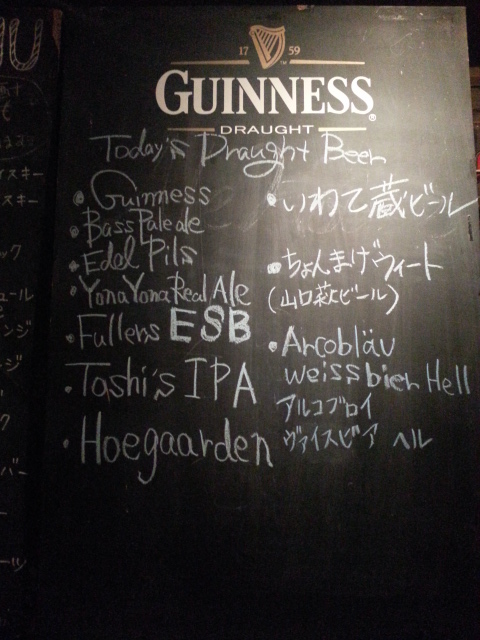 17 59
GUINNESS
DRAUGHT
Today's Draught Beer
・Guinness
・Bass Pale ale
・Edel Pils
・Yona Yona Real Ale
・Fullers ESB
・Toshi's IPA
・Hoegaarden
・いわて蔵ビール
・ちょんまげウィート
(山口萩ビール)
・Arcobläu
weissbier Hell
アルコブロイ
ヴァイスビア ヘル